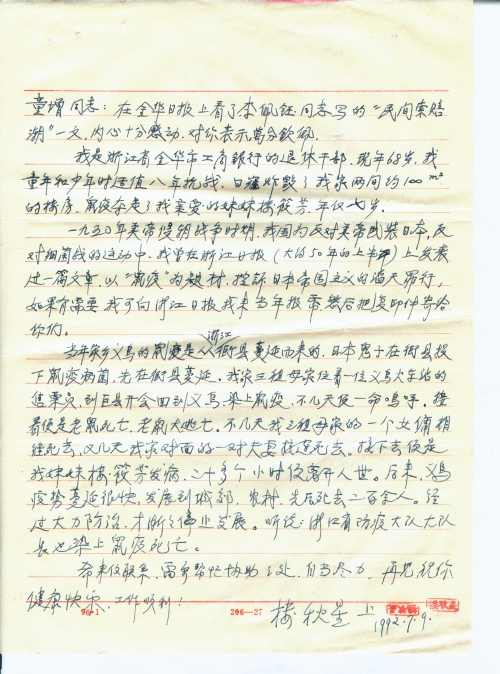 童增同志：在金华日报上看了李佩钰同志写的“民间索赔
潮”一文，内心十分感动，对你表示万分钦佩。
我是浙江省金华市工商银行的退休干部，现年68岁，我
童年和少年时适值八年抗战，日寇炸毁了我家两间约100m²
的楼房，鼠疫夺走了我亲爱的妹妹楼筱芳年仅七岁。
一九五〇年美帝侵朝战争时期，我国为反对美帝武装日本，反
对细菌战的运动中，我曾在浙江日报（大约50年的上半年）上发表
过一篇文章，以“鼠疫”为题材，控诉日本帝国主义的滔天罪行，
如果有需要，我可向浙江日报找来当年报纸，然后把复印件寄给
你们。
浙江
当年家乡义乌的鼠疫是从衢县蔓延而来的，日本鬼子在衢县投
下鼠疫病菌，先在衢县蔓延。我家三祖母家住着一位义乌火车站的
售票员，到衢县开会回到义乌，染上鼠疫，不几天便一命呜呼。接
着便是老鼠死亡，老鼠大批亡。不几天我三祖母家的一个女佣相
继死去，又几天我家对面的一对夫妻接连死去。接下去便是
我妹妹楼筱芳发病，二十多个小时便离开人世。后来，义乌
疫势蔓延很快，发展到城郊，农村，先后死去二百余人。经
过大力防治，才渐渐停止发展。听说：浙江省防疫大队大队
长也染上鼠疫死亡。
希来信联系，需要帮忙协助之处，自当尽力，再见祝你
健康快乐，工作顺利！
楼秋星 上
1992.7.9.
96-1
208—27